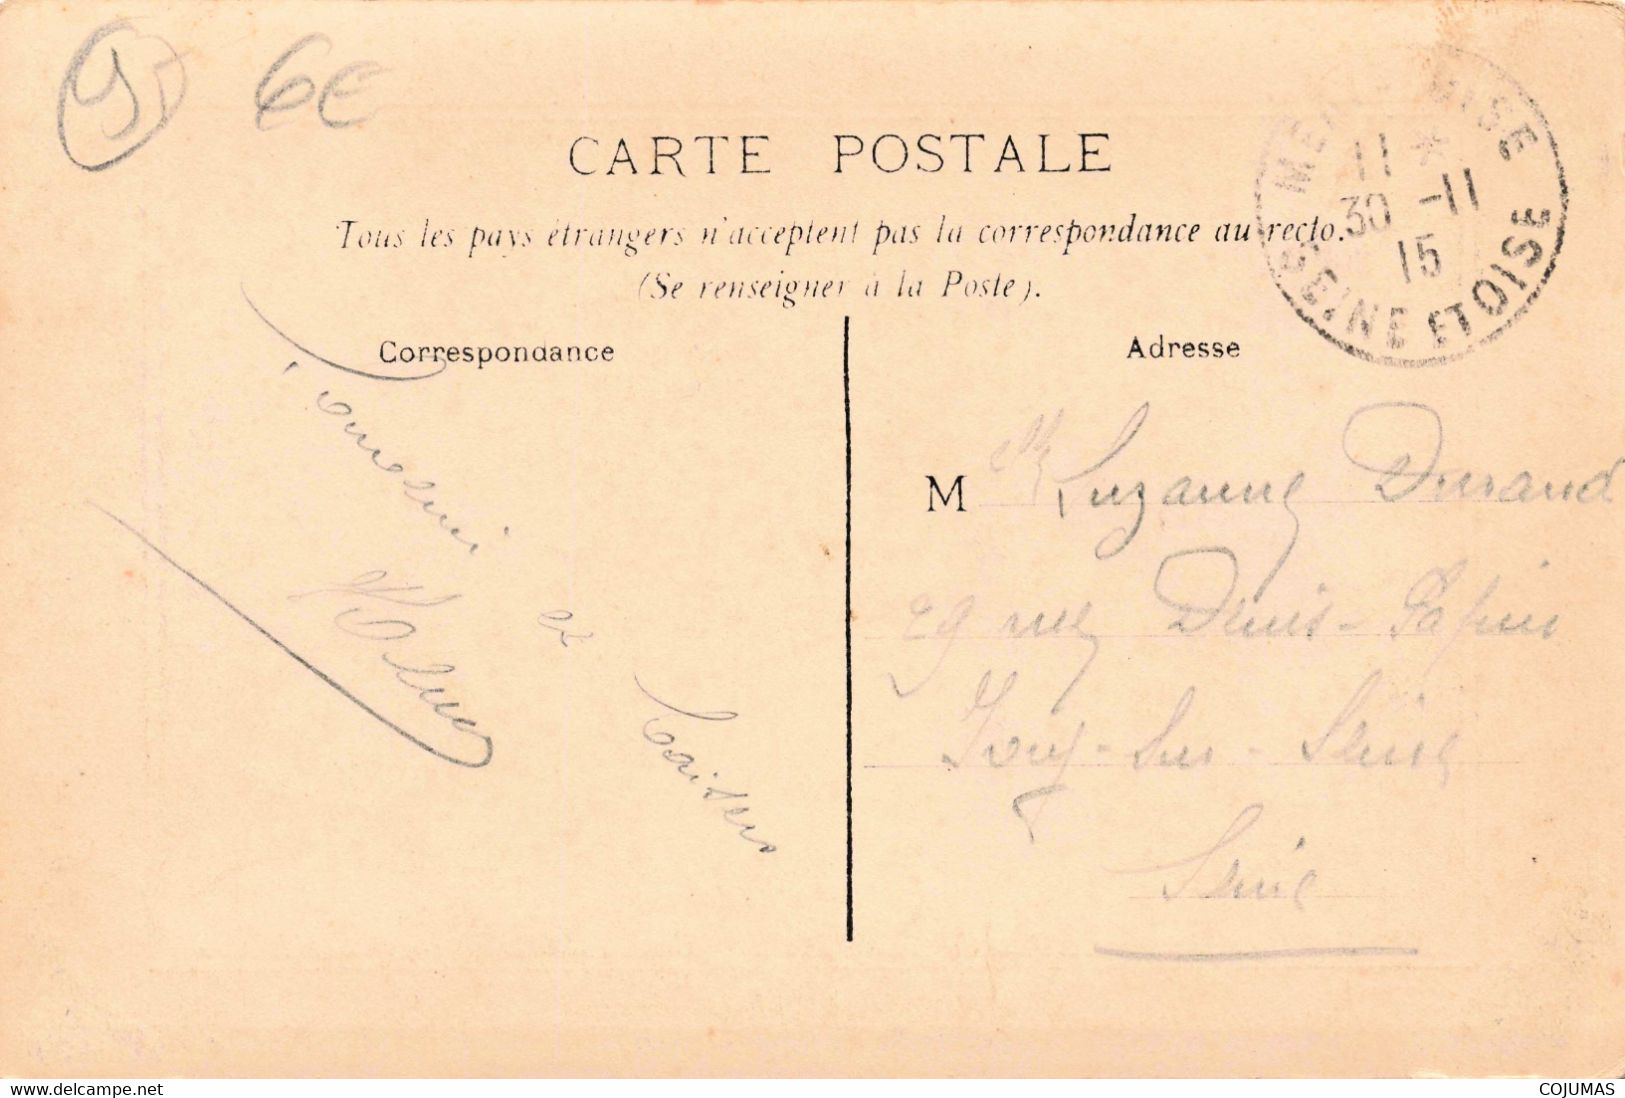 95
6€
CARTE POSTALE
Tous les pays étrangers n'acceptent pas la correspondance au recto.
(Se renseigner à la Poste).
11 *
30 -11
15
SEINE ET OISE
Correspondance
Adresse
et
baisers
M lle Suzanne Durand
29 rue Denis-Papin
Ivry-Sur-Seine
Seine
www.delcampe.net
COJUMAS